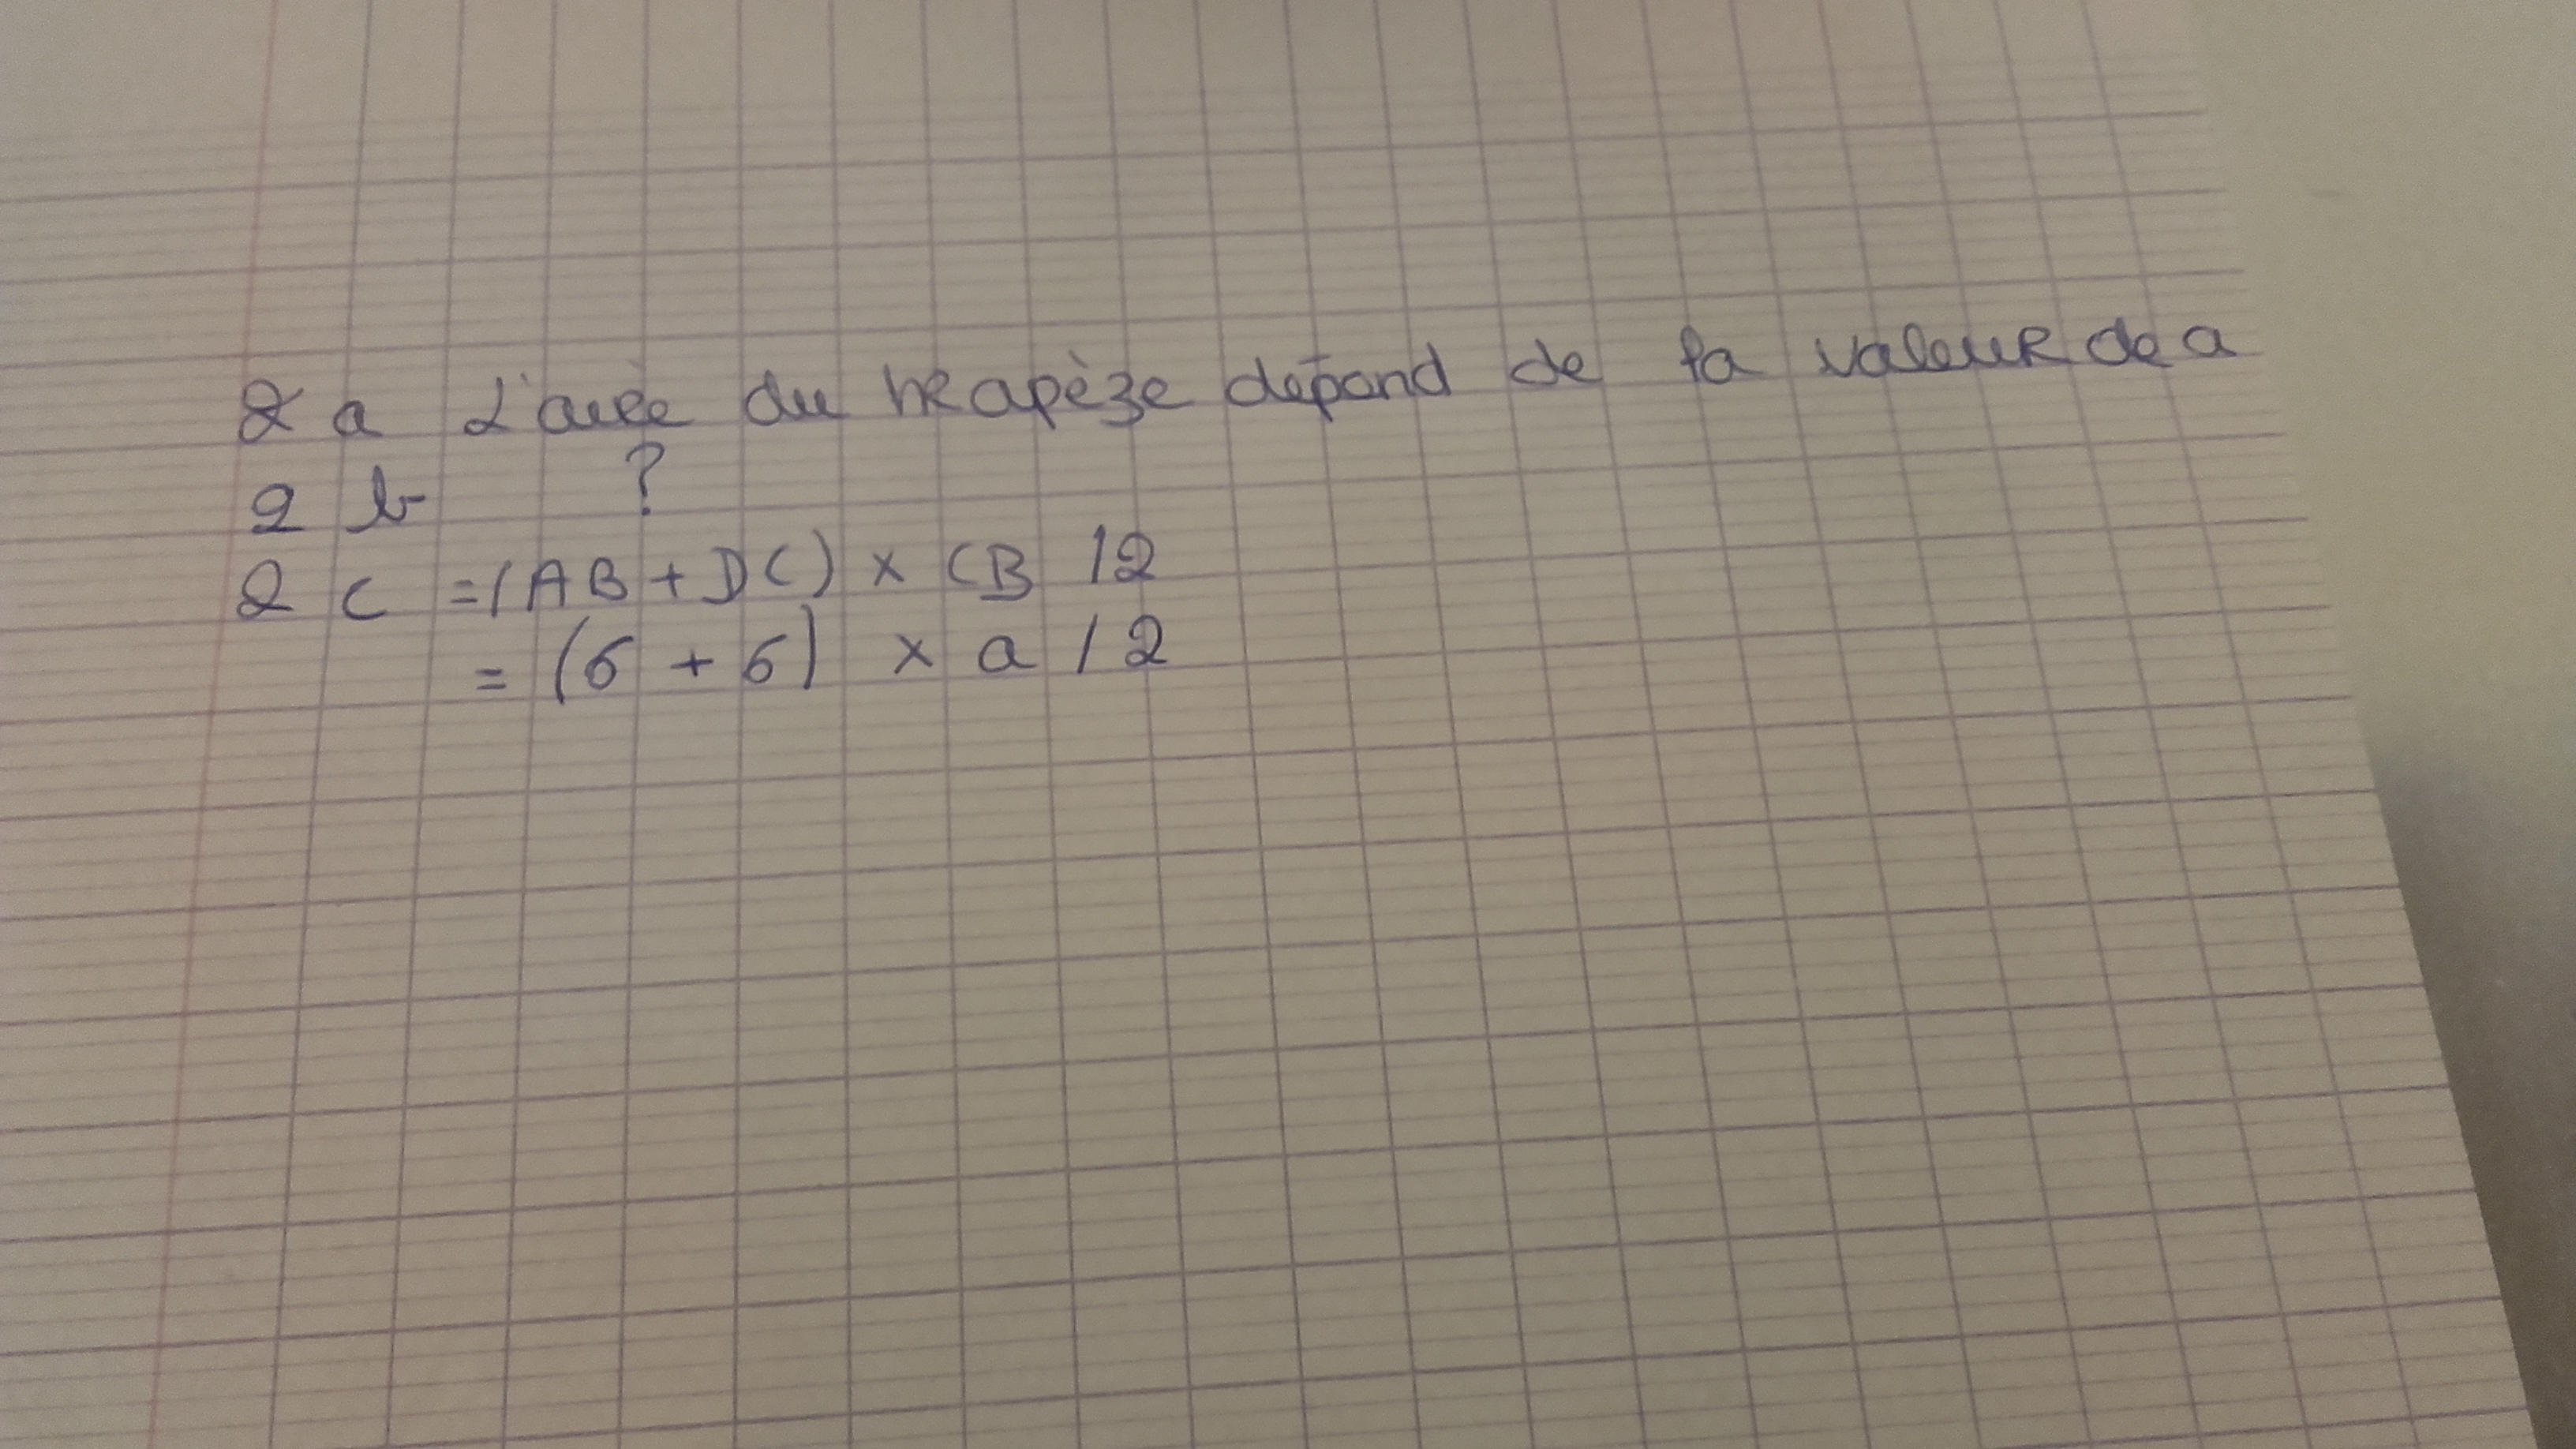 2 a L'aire du trapèze dépand de la valeur de a
2 b ?
2 c = (AB + DC) × CB / 2
= (6 + 6) × a / 2